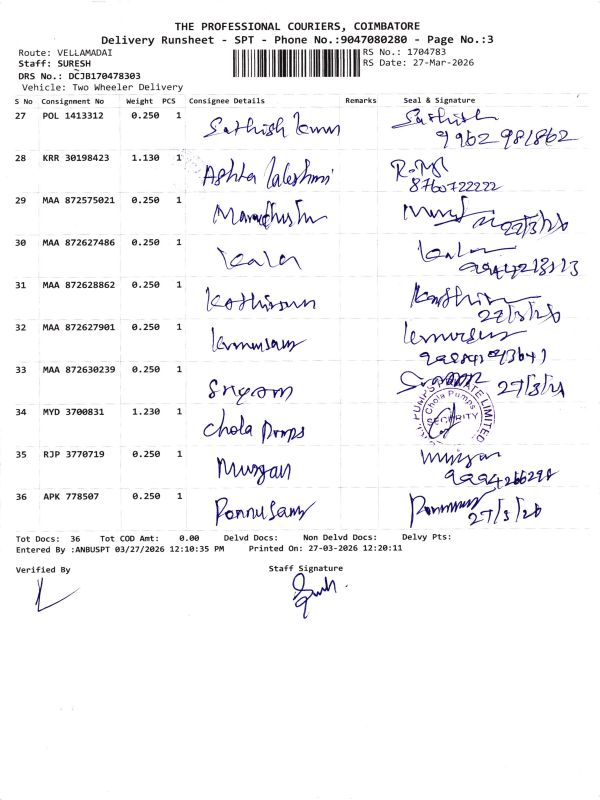 THE PROFESSIONAL COURIERS, COIMBATORE
Delivery Runsheet - SPT - Phone No.:9047080280 - Page No.:3
Route: VELLAMADAI RS No.: 1704783
Staff: SURESH RS Date: 27-Mar-2026
DRS No.: DCJB170478303
Vehicle: Two Wheeler Delivery
S No Consignment No Weight PCS Consignee Details Remarks Seal & Signature
27 POL 1413312 0.250 1 Sathish Kumar Sathish
9962981862
28 KRR 30198423 1.130 1 Ashta Lakshmi
8760722222
29 MAA 872575021 0.250 1
30 MAA 872627486 0.250 1 Kala Kala
31 MAA 872628862 0.250 1 Kathirvan
27/3/26
32 MAA 872627901 0.250 1
33 MAA 872630239 0.250 1 Sriyam
27/3/26
34 MYD 3700831 1.230 1 Chola Pumps Chola Pumps SECURITY
35 RJP 3770719 0.250 1 Murugan Murugan
9994266298
36 APK 778507 0.250 1 Ponnusamy
27/3/26
Tot Docs: 36 Tot COD Amt: 0.00 Delvd Docs: Non Delvd Docs: Delvy Pts:
Entered By :ANBUSPT 03/27/2026 12:10:35 PM Printed On: 27-03-2026 12:20:11
Verified By Staff Signature